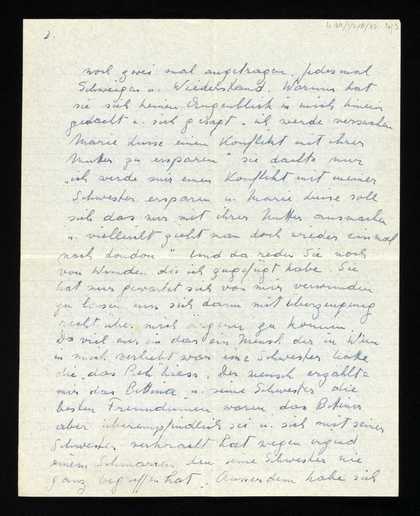 2.
noch zwei mal angetragen. Jedesmal
Schweigen u. Wiederstand. Warum hat
sie sich keinen Augenblick in mich hinein
gedacht u. sich gesagt „ich werde versuchen
Marie Luise einen Konflikt mit ihrer
Mutter zu ersparen" sie dachte nur
„ich werde mir einen Konflikt mit meiner
Schwester ersparen u. Marie Luise soll
sich das nur mit ihrer Mutter ausmachen
u. vielleicht geht man doch wieder einmal
nach London." Und da reden Sie noch
von Wunden die ich zugefügt habe. Sie
hat nur gewartet sich von mir verwunden
zu lassen um sich dann mit Überzeugung
recht über mich ärgern zu können.
Da viel mir ein das ein Mensch der in Wien
in mich verliebt war eine Schwester hatte
die das Reh hiess. Der Mensch erzählte
mir das Bettina u. seine Schwester die
besten Freundinnen waren, das Bettina
aber überempfindlich sei u. sich mit seiner
Schwester verkracht hat wegen irgend
einem Schmarren, den seine Schwester nie
ganz begriffen hat. Ausserdem habe sich